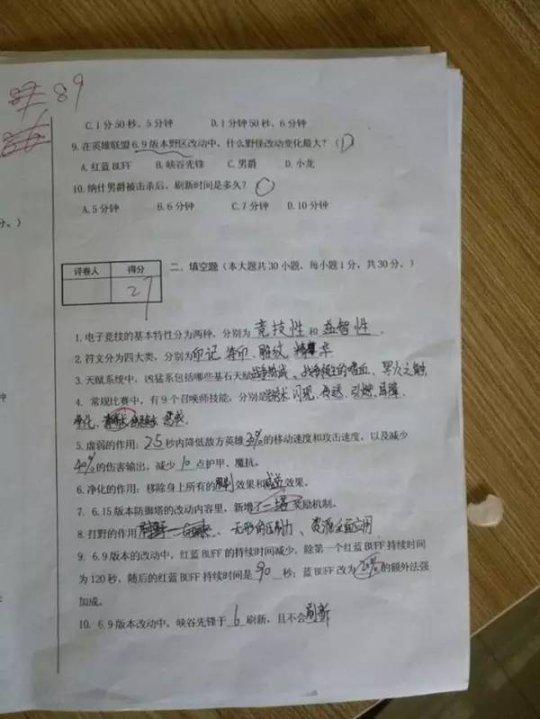 89
C. 1分50秒、5分钟 D. 1分50秒、6分钟
9. 在英雄联盟6.9版本野区改动中，什么野怪改动变化最大？（D）
A. 红蓝BUFF B. 峡谷先锋 C. 男爵 D. 小龙
10. 纳什男爵被击杀后，刷新时间是多久？
A. 5分钟 B. 6分钟 C. 7分钟 D. 10分钟
分。）
评卷人 得分
27
二、填空题（本大题共30小题，每小题1分，共30分。）
1. 电子竞技的基本特性分为两种，分别为 竞技性 和 益智性 .
2. 符文分为四大类，分别为印记 雕纹 精华
3. 天赋系中，凶猛系包括哪些基石天赋 战争领主的嗜血、死火之触
4. 常规比赛中，有9个召唤师技能，分别是 闪现、传送、引燃、屏障、
净化、 惩戒.
5. 虚弱的作用：2.5秒内降低敌方英雄30%的移动速度和攻击速度，以及减少
40%的伤害输出，减少10点护甲、魔抗。
6. 净化的作用：移除身上所有的 效果和减益效果。
7. 6.15版本防御塔的改动内容里，新增了一塔奖励机制。
8. 打野的作用 无形的压制力、资源
9. 6.9版本的改动中，红蓝BUFF的持续时间减少，除第一个红蓝BUFF持续时间
为120秒，随后的红蓝BUFF持续时间是 90 秒；蓝BUFF改为 的额外法强
加成。
10. 6.9版本改动中，峡谷先锋于 6 刷新，且不会刷新